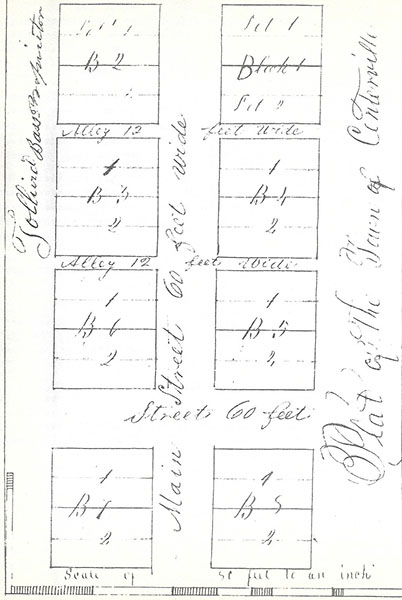 Lot 1
B 2
Lot 1
Block 1
Lot 2
Bass Proprietor
Alley 12 feet Wide
1
B 3
2
1
B 4
2
Alley 12 feet Wide
1
B 6
2
1
B 5
2
Street 60 feet
Main Street 60 feet wide
1
B 7
2
1
B
2
Plat of The Town of Centerville
Scale of feet to an inch